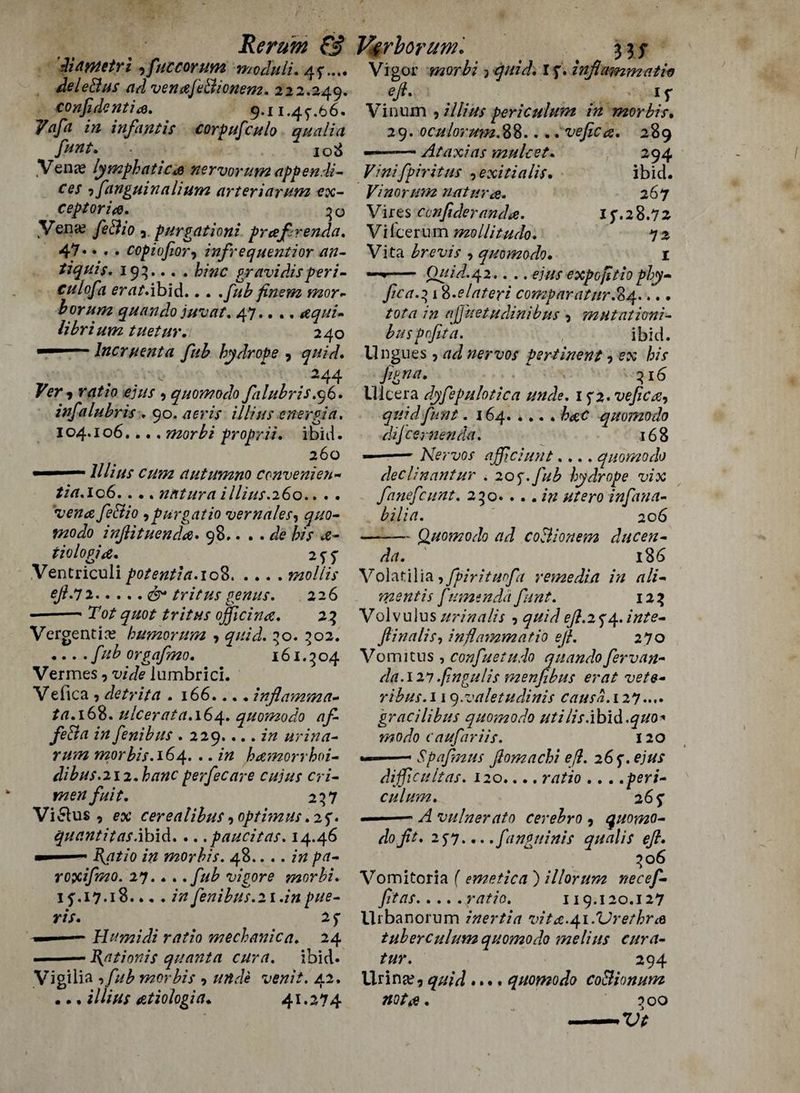 Rerum & Verborum. 335
diametri , succorum moduli. 45....
delectus ad venæsectionem. 222.249.
confidentiæ. 9.11.45.66.
Vasa in infantis corpusculo qualia
sunt. 108
Venæ lymphaticæ nervorum appendi-
ces , sanguinalium arteriarum ex-
ceptoriæ. 30
Venæ sectio , purgationi præferenda.
47.... copiosior, infrequentior an-
tiquis. 193.... hinc gravidis peri-
culosa erat.ibid.... sub finem mor-
borum quando juvat. 47.... æqui-
librium tuetur. 240
—— Incruenta sub hydrope , quid.
244
Ver, ratio ejus , quomodo salubris.96.
insalubris . 90. aeris illius energia.
104.106.... morbi proprii. ibid.
260
—— Illius cum autumno convenien-
tia.106.... natura illius.260....
venæ sectio , purgatio vernales, quo-
modo instituendæ. 98.... de his æ-
tiologiæ. 255
Ventriculi potentia.108..... mollis
est.72..... & tritus genus. 226
—— Tot quot tritus officinæ. 23
Vergentiæ humorum , quid. 30. 302.
.... sub orgasmo. 161.304
Vermes , vide lumbrici.
Vesica , detrita . 166.... inflamma-
ta.168. ulcerata.164. quomodo af-
fecta in senibus . 229.... in urina-
rum morbis.164. .. in hæmorrhoi-
dibus.212. hanc persecare cujus cri-
men fuit. 237
Victus , ex cerealibus , optimus . 25.
quantitas.ibid.... paucitas. 14.46
—— Ratio in morbis. 48.... in pa-
roxismo. 27.... sub vigore morbi.
15.17.18.... in senibus.21.in pue-
ris. 25
—— Humidi ratio mechanica. 24
—— Rationis quanta cura. ibid.
Vigilia , sub morbis , unde venit. 42.
... illius ætiologia. 41.274
Vigor morbi , quid. 15. inflammatio
est. 15
Vinum , illius periculum in morbis.
29. oculorum.88.... vesicæ. 289
—— Ataxias mulcet. 294
Vini spiritus , exitialis. ibid.
Vinorum naturæ. 267
Vires considerandæ. 15.28.72
Viscerum mollitudo. 72
Vita brevis , quomodo. 1
—— Quid.42.... ejus expositio phy-
sica.318.elateri comparatur.84....
tota in assuetudinibus , mutationi-
bus posita. ibid.
Ungues , ad nervos pertinent , ex his
signa. 316
Ulcera dysepulotica unde. 152. vesicæ,
quid sunt . 164..... hæc quomodo
discernenda. 168
—— Nervos afficiunt.... quomodo
declinantur . 205. sub hydrope vix
sanescunt. 230.... in utero insana-
bilia. 206
—— Quomodo ad coctionem ducen-
da. 186
Volatilia , spirituosa remedia in ali-
mentis sumenda sunt. 123
Volvulus urinalis , quid est.254. inte-
stinalis, inflammatio est. 270
Vomitus , consuetudo quando servan-
da.127.singulis mensibus erat vete-
ribus.119.valetudinis causa.127....
gracilibus quomodo utilis.ibid.quo-
modo causariis. 120
—— Spasmus stomachi est. 265. ejus
difficultas. 120.... ratio .... peri-
culum. 265
—— A vulnerato cerebro , quomo-
do fit. 257.... sanguinis qualis est.
306
Vomitoria ( emetica ) illorum neces-
sitas..... ratio. 119.120.127
Urbanorum inertia vitæ.41.Urethræ
tuberculum quomodo melius cura-
tur. 294
Urinæ, quid .... quomodo coctionum
notæ. 300
—— Ut